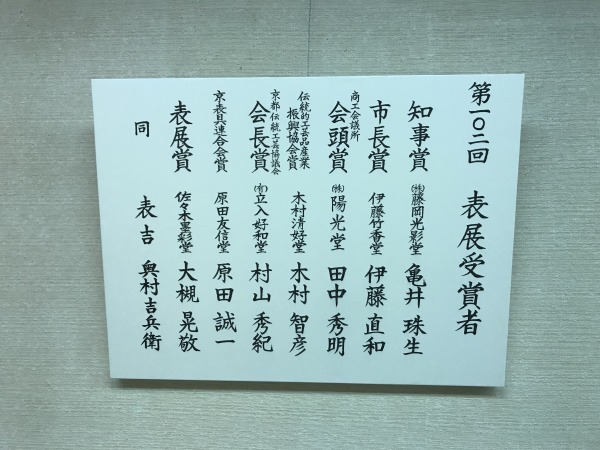 第一〇二回 表展受賞者
知事賞 ㈱藤岡光影堂 亀井 珠生
市長賞 伊藤竹香堂 伊藤 直和
商工会議所会頭賞 ㈱陽光堂 田中 秀明
伝統的工芸品産業振興協会賞 木村清好堂 木村 智彦
京都伝統工芸協議会会長賞 ㈲立入好和堂 村山 秀紀
京表具連合会賞 原田友信堂 原田 誠一
表展賞 佐々木墨彩堂 大槻 晃敬
同 表吉 奥村吉兵衛